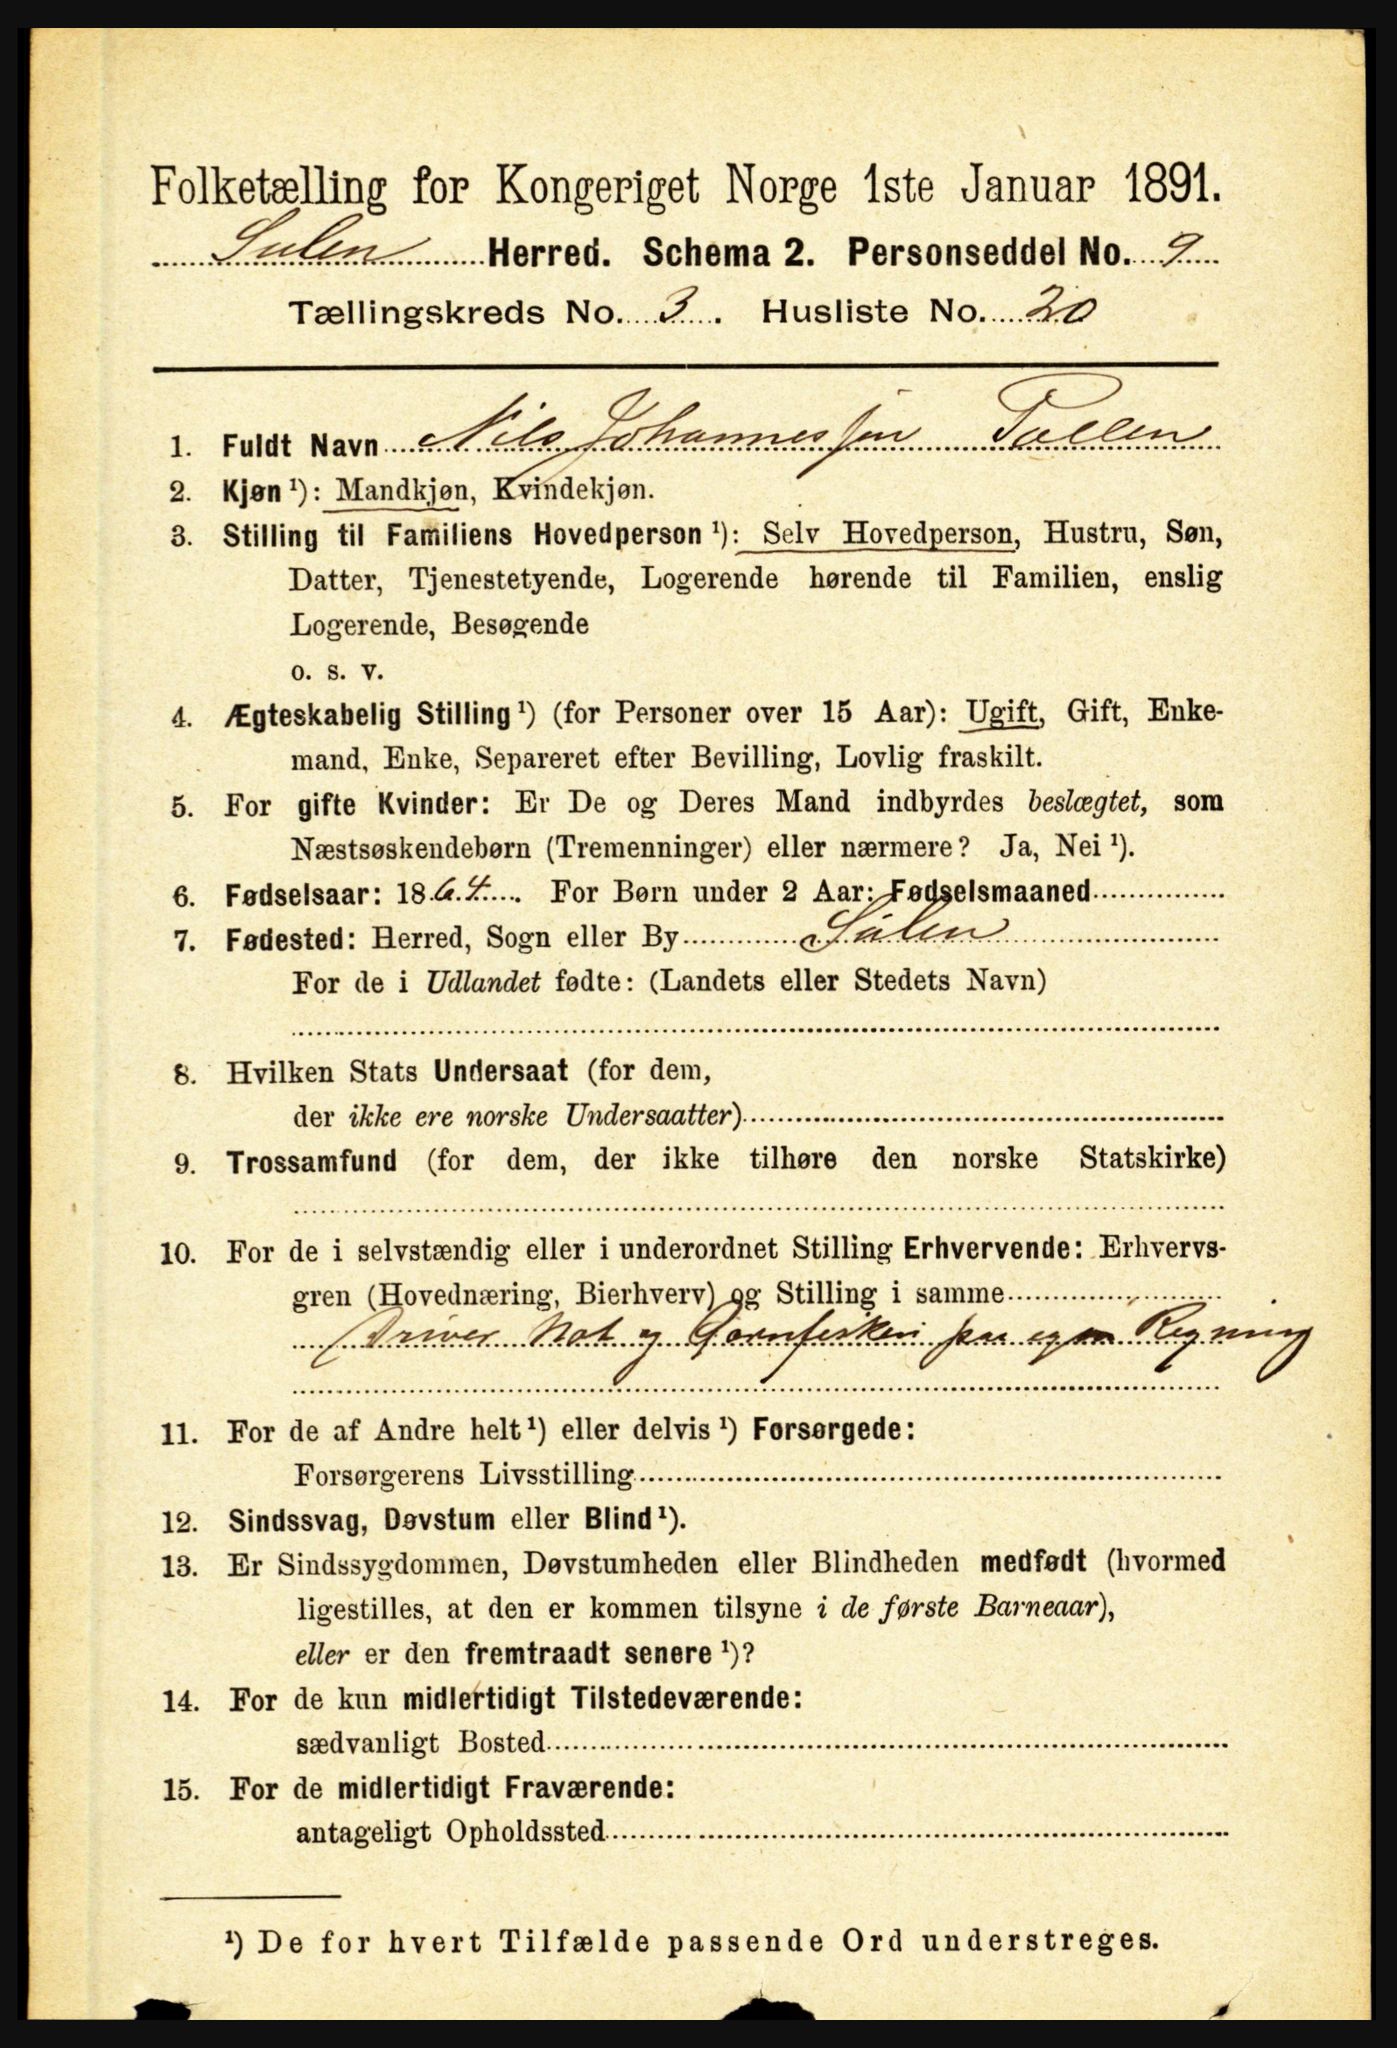 Folketælling for Kongeriget Norge 1ste Januar 1891.
Sulen Herred. Schema 2. Personseddel No. 9
Tællingskreds No. 3. Husliste No. 20
1. Fuldt Navn Nils Johannessen
2. Kjøn ¹): Mandkjøn, Kvindekjøn.
3. Stilling til Familiens Hovedperson ¹): Selv Hovedperson, Hustru, Søn,
Datter, Tjenestetyende, Logerende hørende til Familien, enslig
Logerende, Besøgende
o. s. v.
4. Ægteskabelig Stilling ¹) (for Personer over 15 Aar): Ugift, Gift, Enke-
mand, Enke, Separeret efter Bevilling, Lovlig fraskilt.
5. For gifte Kvinder: Er De og Deres Mand indbyrdes beslægtet, som
Næstsøskendebørn (Tremenninger) eller nærmere? Ja, Nei ¹).
6. Fødselsaar: 1864. For Børn under 2 Aar: Fødselsmaaned
7. Fødested: Herred, Sogn eller By Sulen
For de i Udlandet fødte: (Landets eller Stedets Navn)
8. Hvilken Stats Undersaat (for dem,
der ikke ere norske Undersaatter)
9. Trossamfund (for dem, der ikke tilhøre den norske Statskirke)
10. For de i selvstændig eller i underordnet Stilling Erhvervende: Erhvervs-
gren (Hovednæring, Bierhverv) og Stilling i samme
Driver Not og Garnfiskeri paa egen Regning
11. For de af Andre helt ¹) eller delvis ¹) Forsørgede:
Forsørgerens Livsstilling
12. Sindssvag, Døvstum eller Blind ¹).
13. Er Sindssygdommen, Døvstumheden eller Blindheden medfødt (hvormed
ligestilles, at den er kommen tilsyne i de første Barneaar),
eller er den fremtraadt senere ¹)?
14. For de kun midlertidigt Tilstedeværende:
sædvanligt Bosted
15. For de midlertidigt Fraværende:
antageligt Opholdssted
¹) De for hvert Tilfælde passende Ord understreges.